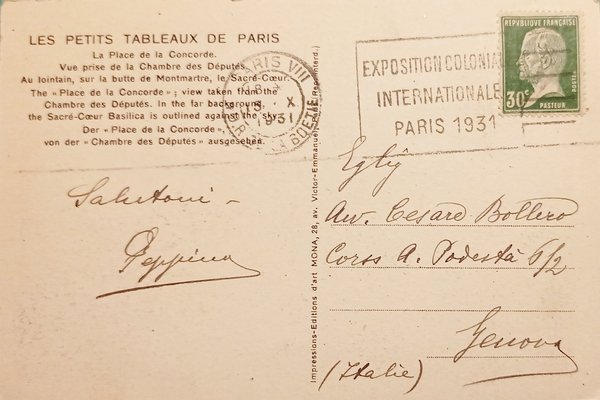 LES PETITS TABLEAUX DE PARIS
La Place de la Concorde.
Vue prise de la Chambre des Députés.
Au lointain, sur la butte de Montmartre, le Sacré-Cœur.
The « Place de la Concorde » ; view taken from the
Chambre des Députés. In the far background
the Sacré-Cœur Basilica is outlined against the sky.
Der « Place de la Concorde »,
von der « Chambre des Députés » ausgesehen.
PARIS VIII
X
1931
LA BOETIE
EXPOSITION COLONIALE
INTERNATIONALE
PARIS 1931
REPUBLIQUE FRANÇAISE
POSTES
30c
PASTEUR
Impressions-Editions d'art MONA, 28, av. Victor-Emmanuel, Paris (Rep. interd.)
Salutoni -
Peppino
Egly
Avv. Cesare Bollero
Corso A. Podestà 6/2
Genova
(Italie)